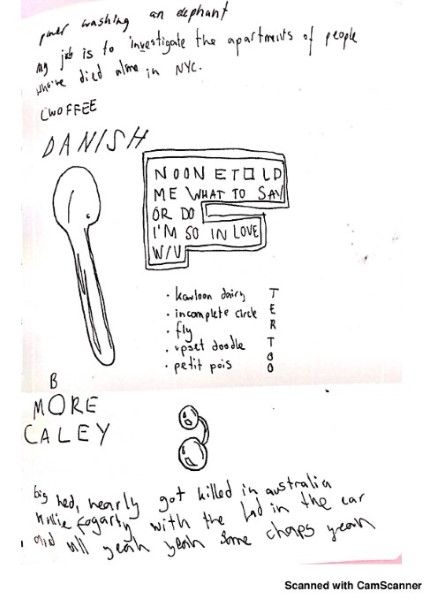 power washing an elephant
my job is to investigate the apartments of people
who've died alone in NYC.
CWOFFEE
DANISH
NOONE TOLD
ME WHAT TO SAY
OR DO
I'M SO IN LOVE
W/U
• kowloon dairy
• incomplete circle
• fly
• upset doodle
• petit pois
TERTOO
B
MORE
CALEY
big hed, nearly got killed in australia
willie fogarty with the lad in the car
and all yeah yeah some chaps yeah
Scanned with CamScanner